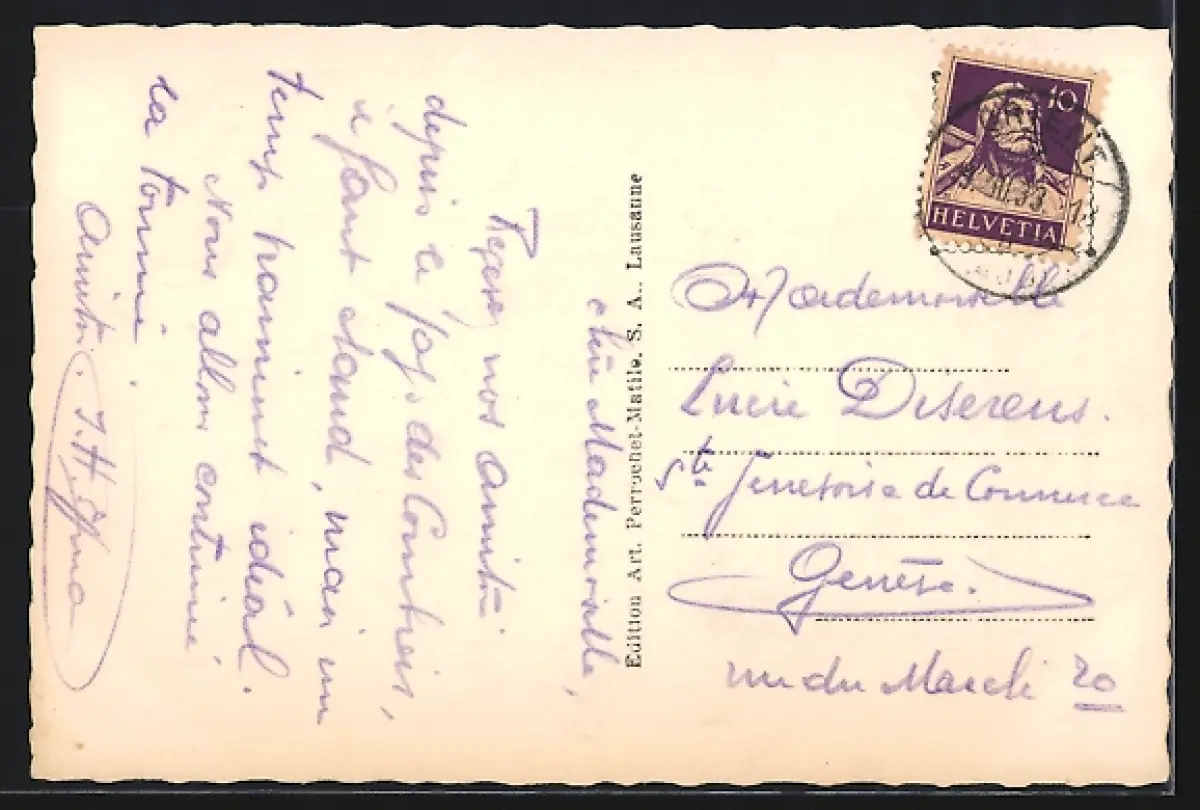 chère Mademoiselle,
Recevez nos amitiés
depuis le pays des Comtois,
il faut chaud, mais un
temps vraiment idéal.
Nous allons continué
la tournée.
Amitiés.
Edition Art. Perrochet-Matile. S. A., Lausanne
10
HELVETIA
33
Mademoiselle
Lucie Diserens.
Sté Genevoise de Commerce
Genève.
rue du Marché 20